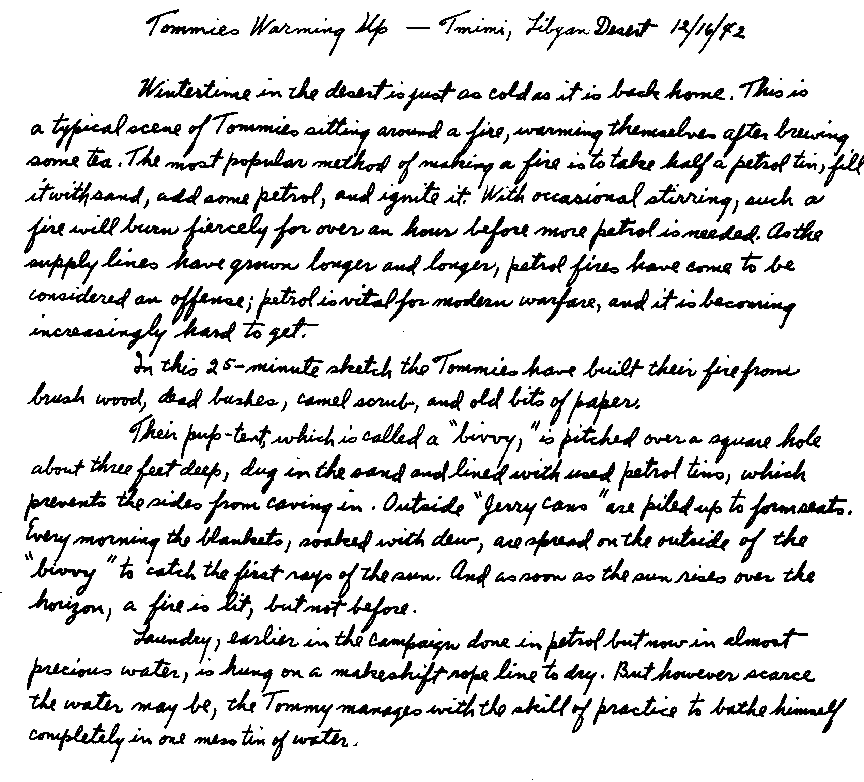 Tommies Warming Up — Tmimi, Libyan Desert 12/16/42
Wintertime in the desert is just as cold as it is back home. This is
a typical scene of Tommies sitting around a fire, warming themselves after brewing
some tea. The most popular method of making a fire is to take half a petrol tin, fill
it with sand, add some petrol, and ignite it. With occasional stirring, such a
fire will burn fiercely for over an hour before more petrol is needed. As the
supply lines have grown longer and longer, petrol fires have come to be
considered an offense; petrol is vital for modern warfare, and it is becoming
increasingly hard to get.
In this 25-minute sketch the Tommies have built their fire from
brush wood, dead bushes, camel scrub, and old bits of paper.
Their pup-tent, which is called a "bivvy," is pitched over a square hole
about three feet deep, dug in the sand and lined with used petrol tins, which
prevents the sides from caving in. Outside "Jerry cans" are piled up to form seats.
Every morning the blankets, soaked with dew, are spread on the outside of the
"bivvy" to catch the first rays of the sun. And as soon as the sun rises over the
horizon, a fire is lit, but not before.
Laundry, earlier in the campaign done in petrol but now in almost
precious water, is hung on a makeshift rope line to dry. But however scarce
the water may be, the Tommy manages with the skill of practice to bathe himself
completely in one mess tin of water.